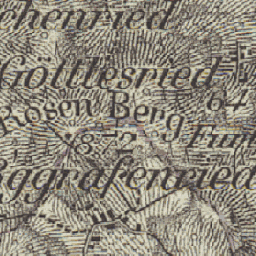 chenried
Göttlesried
Rosen Berg
64
632
ggrafenried